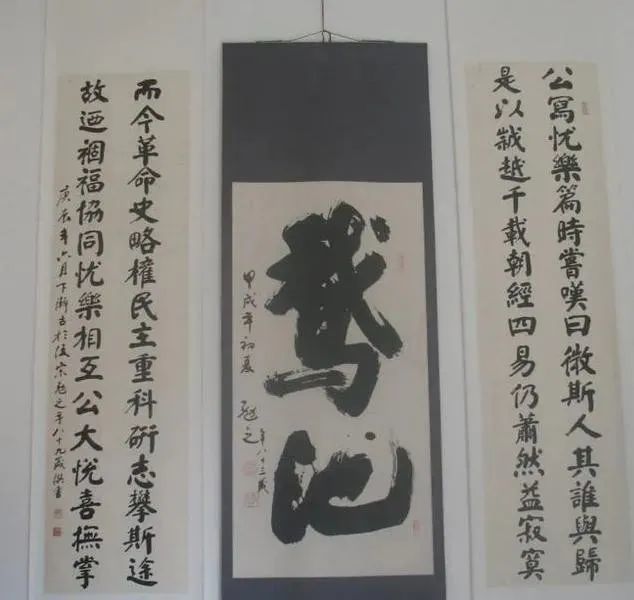 公寫忧樂篇時嘗嘆曰微斯人其誰與歸
是以越千載朝經四易仍蕭然益寂寞
鵝池
甲戌年初夏
之
年八十三歲
而今革命史略權民主重科研志攀斯途
故迺祻福協同忧樂相互公大悅喜撫掌
庚辰年六月下澣古於陵宗之年八十九歲撰書